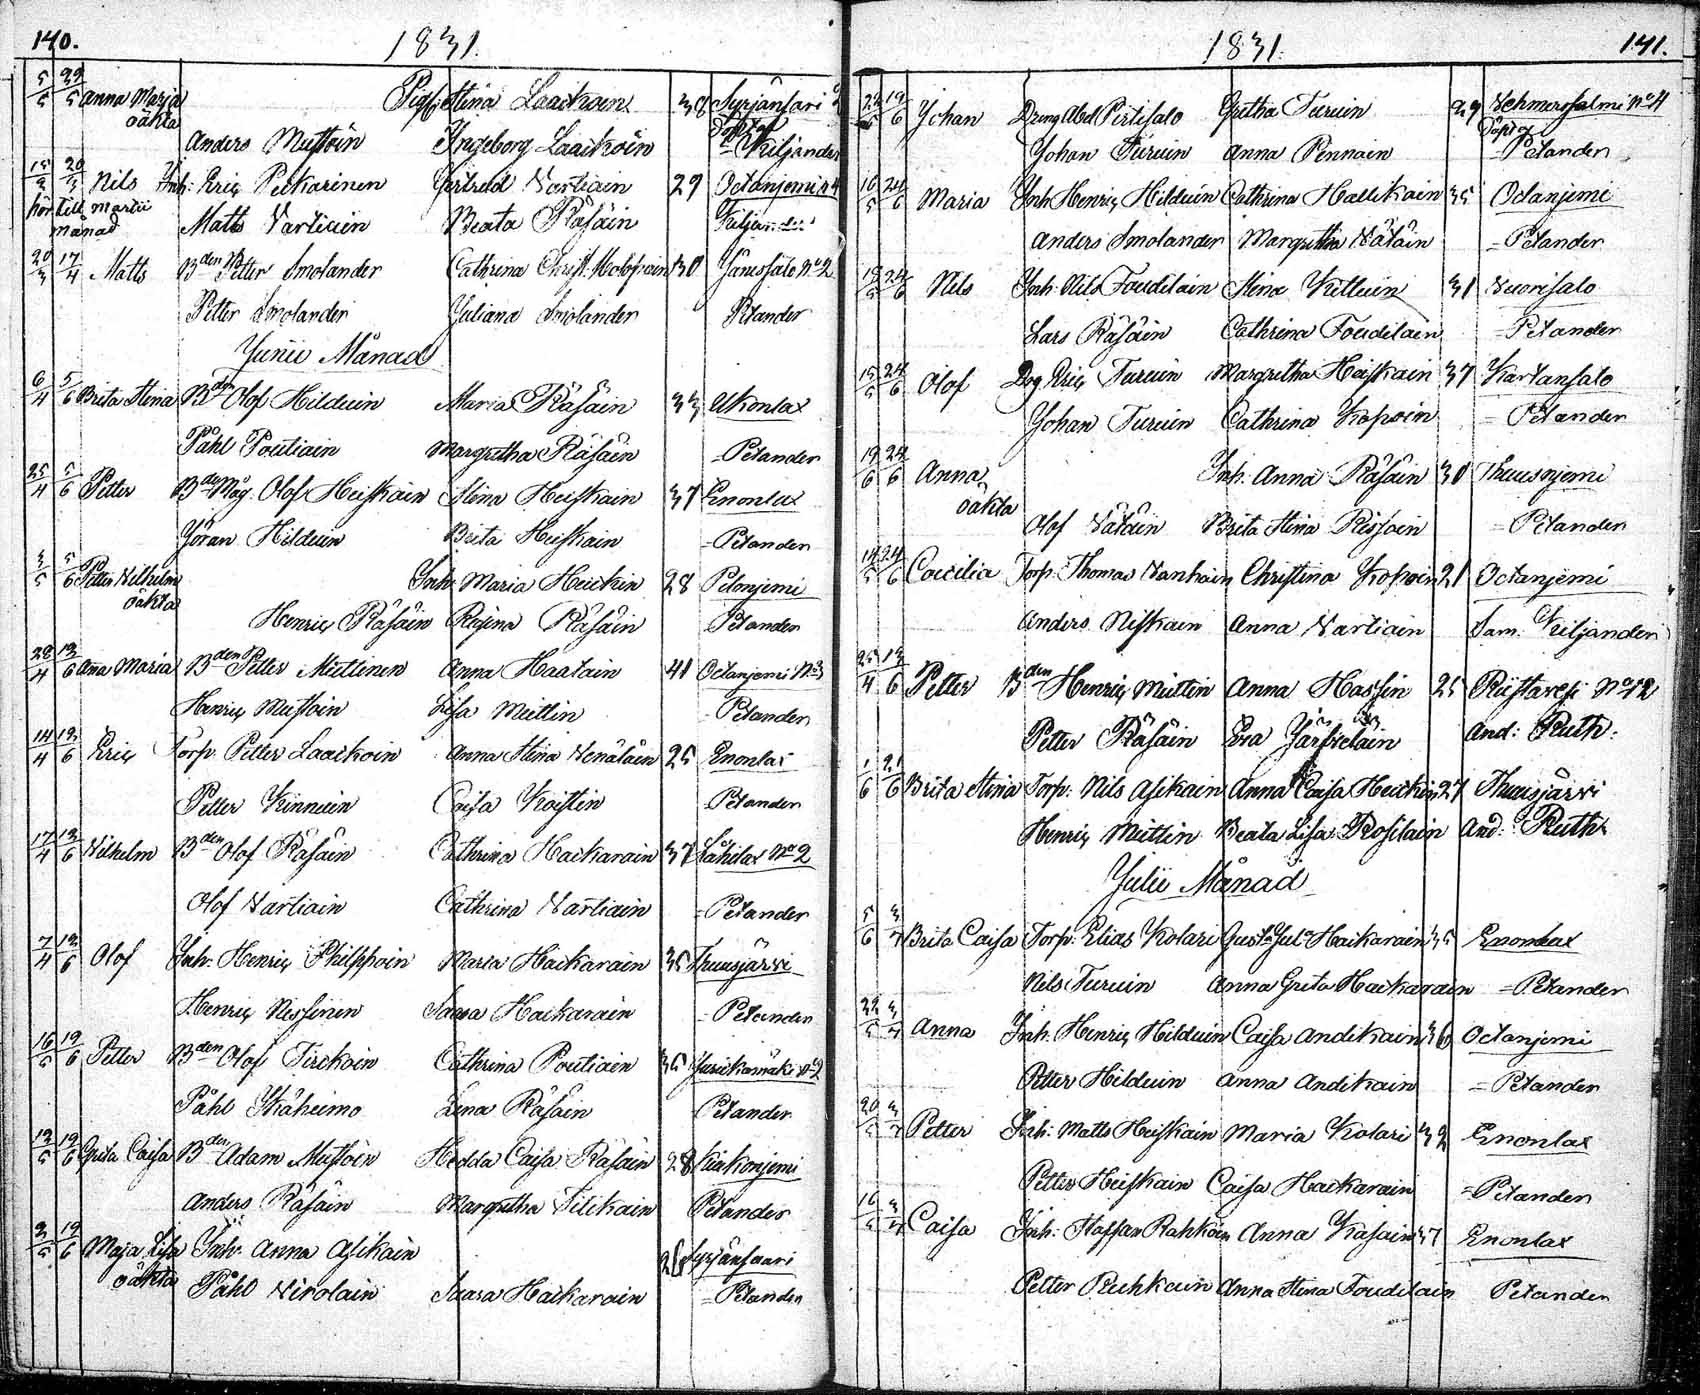 140.
1831.
5/5 29/5 Anna Maria Pig: Stina Laaikoin 38 Syrjänsari
oäkta
Anders Mustöin Ingeborg Laaikoin Kiljander
15/3 20/3 Nils Inh: Eric Pekarinen Gertrud Vartiain 29 Octanjemi
hör till martii månad
Matts Vartiain Beata Räsäin Kiljander
20/3 17/4 Matts Bden Petter Smolander Cathrina Christ. 30 Jänissalo No 2
Petter Smolander Juliana Smolander Petander
Junii Månad
6/4 5/6 Brita Stina Bden Olof Hilduin Maria Räsäin 33 Ukonlax
Påhl Poutiain Margretha Räsäin = Petander
25/4 5/6 Petter Bden Måg. Olof Heiskain Stina Heiskain 37 Enonlax
Jöran Hilduin Brita Heiskain = Petander
3/5 5/6 Petter Vilhelm Inh: Maria Heickin 28 Petonjemi
oäkta
Henric Räsäin Regina Räsäin Petander
28/4 12/6 Anna Maria Bden Petter Miettinen Anna Haatain 41 Octanjemi No 3
Henric Mustöin Lisa Miettin = Petander
14/4 12/6 Eric Torp: Petter Laaikoin Anna Stina Venäläin 25 Enonlax
Petter Kinnuin Caisa Koistin = Petander
17/4 12/6 Vilhelm Bden Olof Räsäin Cathrina Hackarain 37 Lähilax No 2
Olof Vartiain Cathrina Vartiain = Petander
7/4 12/6 Olof Inh: Henric Philppoin Maria Hackarain 35 Thuusjärvi
Henric Nissinen Saara Hackarain = Petander
16/5 19/6 Petter Bden Olof Tirckoin Cathrina Poutiain 36 Jurickamäki No 2
Påhl Ikäheimo Lena Räsäin Petander
12/5 19/6 Greta Caisa Bden Adam Mustöin Hedda Caisa Räsäin 28 Kiukonjemi
Anders Räsäin Margretha Tilikain Petander
3/5 19/6 Maja Lisa Inh: Anna Asikain 26 Syrjänsaari
oäkta Påhl Nirolain Saara Hackarain = Petander
1831.
141.
22/5 19/6 Johan Dreng Abel Pirtisalo Gretha Turuin 29 Vehmersalmi No 4
Johan Turuin Anna Pennain = Petander
16/5 24/6 Maria Inh Henric Hilduin Cathrina Hallikain 35 Octanjemi
Anders Smolander Margretha Vätäin = Petander
15/5 24/6 Nils Inh: Nils Toudilain Stina Kettuin 31 Vuorisalo
Lars Räsäin Cathrina Toudilain = Petander
15/5 24/6 Olof Dog Eric Turuin Margretha Heiskain 37 Kartansalo
Johan Turuin Cathrina Kopoin = Petander
19/6 24/6 Anna Inh: Anna Räsäin 30 Thuusnjemi
oäkta
Olof Vätäin Brita Stina Rissoin = Petander
14/5 24/6 Coecilia Torp: Thomas Vanhain Christina Kopoin 21 Octanjemi
Anders Niskain Anna Vartiain Sam. Kiljander
25/4 13/6 Petter Bden Henric Miettin Anna Hassin 25 Riistavesi No 12
Petter Räsäin Eva Järveläin And: Ruth.
1/6 21/6 Brita Stina Torp: Nils Asikain Anna Caisa Heickin 27 Thuusjärvi
Henric Miettin Beata Lisa Rosilain And: Ruth
Julii Månad
5/6 3/7 Brita Caisa Torp: Elias Kolari Gusta Jula Haikarain 35 Enonlax
Nils Turuin Anna Greta Hackarain = Petander
22/5 3/7 Anna Inh. Henric Hilduin Caisa Andikain 36 Octanjemi
Petter Hilduin Anna Andikain = Petander
20/5 3/7 Petter Inh: Matts Heiskain Maria Kolari 32 Enonlax
Petter Heiskain Caisa Hackarain = Petander
16/5 3/7 Caisa Inh: Staffan Rahkoin Anna Kasain 37 Enonlax
Petter Ruhkain Anna Stina Toudilain Petander